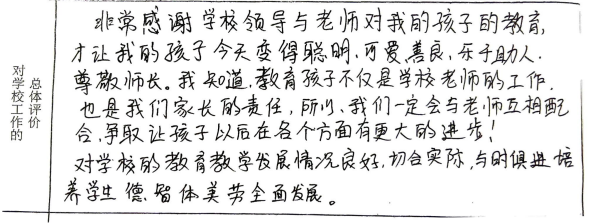 对学校工作的
总体评价
非常感谢学校领导与老师对我的孩子的教育,
才让我的孩子今天变得聪明,可爱,善良,乐于助人.
尊敬师长。我知道,教育孩子不仅是学校老师的工作.
也是我们家长的责任,所以、我们一定会与老师互相配
合,争取让孩子以后在各个方面有更大的进步!
对学校的教育教学发展情况良好,切合实际,与时俱进培
养学生德、智体美劳全面发展。